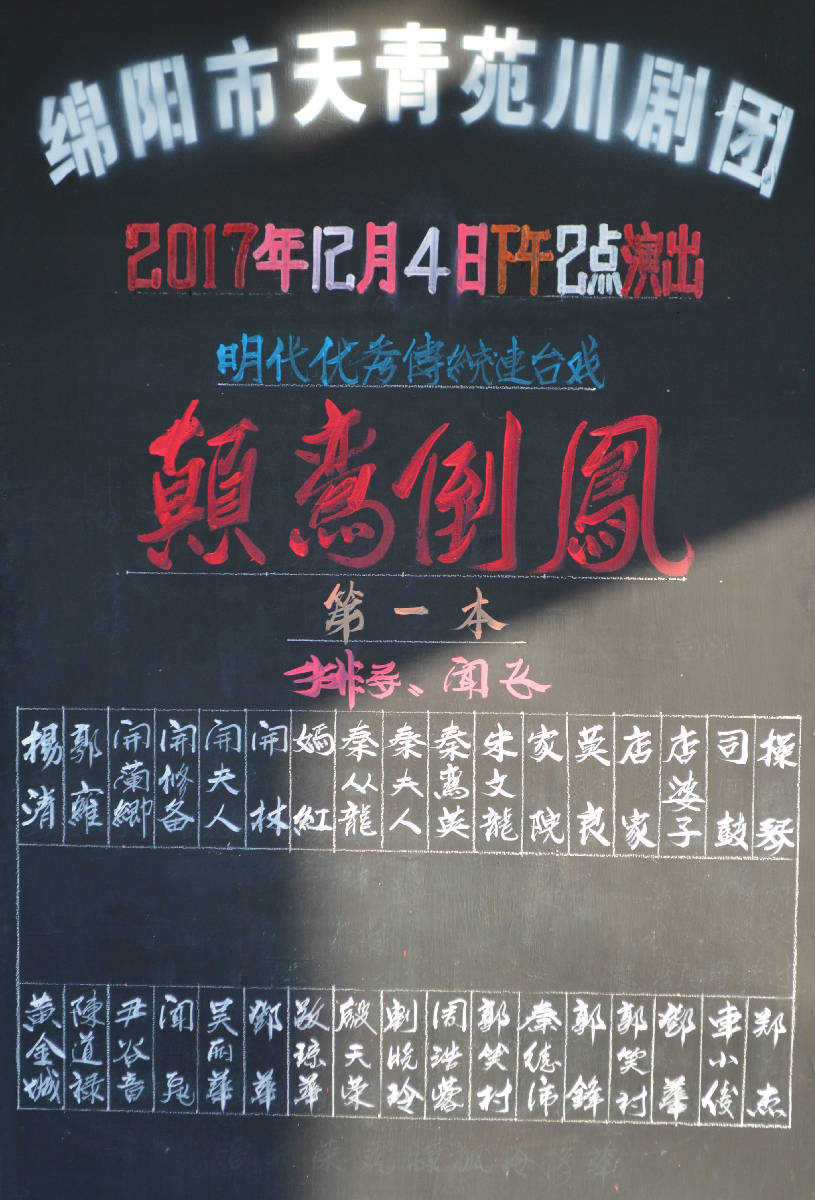 绵阳市天青苑川剧团
2017年12月4日下午2点演出
明代优秀傳统連台戏
顛鸾倒鳳
第一本
排子、闻飞
楊清 郭雍 開蘭卿 開修备 開夫人 開林 嫣紅 秦从龍 秦夫人 秦鸾英 朱文龍 家院 莫良 店家 店婆子 司鼓 操琴
黄金城 陳道禄 尹谷音 吴丽華 鄧華 敬琼華 殷天荣 劉晓玲 周洪蓉 郭笑村 秦德沛 郭鋒 郭笑村 鄧華 車小俊 郑杰